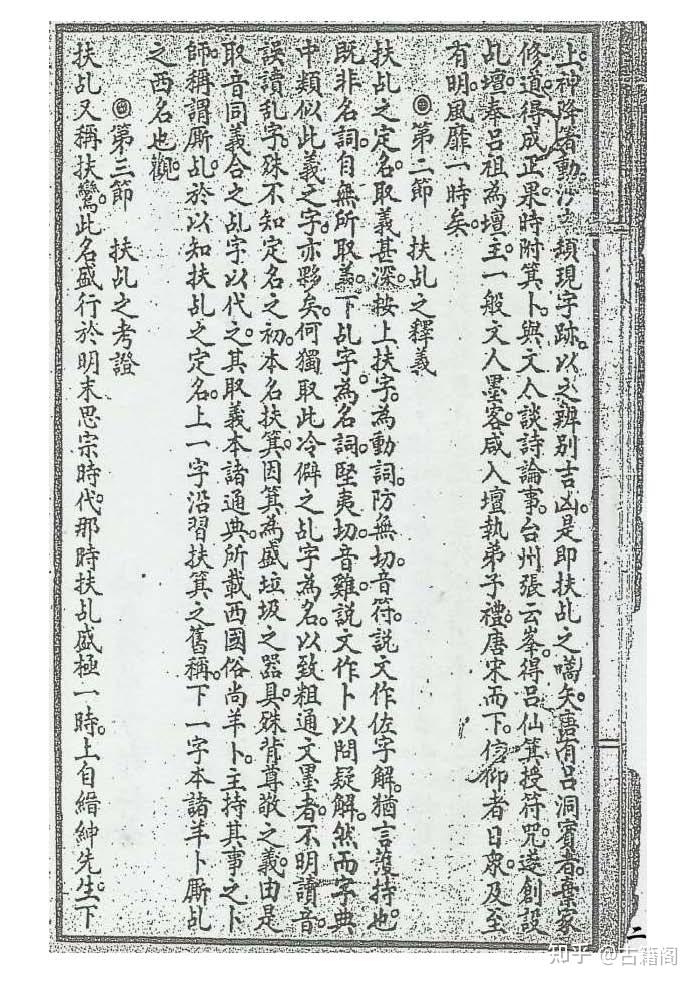 上神降箸動沙盤頻現字跡。以之辨別吉凶。是即扶乩之嚆矢。唐有呂洞賓者。棄家
修道。得成正果。時附箕卜。與文人談詩論事。台州張云峯。得呂仙箕授符咒。遂創設
乩壇。奉呂祖為壇主。一般文人墨客。咸入壇執弟子禮。唐宋而下。信仰者日眾。及至
有明。風靡一時矣。
第二節 扶乩之釋義
扶乩之定名。取義甚深。按上扶字。為動詞。防無切。音符。說文作佐字解。猶言護持也。
既非名詞。自無所取義。下乩字。為名詞。堅夷切。音雞。說文作卜以問疑解。然而字典
中類似此義之字。亦夥矣。何獨取此冷僻之乩字為名。以致粗通文墨者。不明讀音。
誤讀乱字。殊不知定名之初。本名扶箕。因箕為盛垃圾之器具。殊背尊敬之義。由是
取音同義合之乩字以代之。其取義本諸通典所載西國俗尚羊卜。主持其事之卜
師。稱謂廝乩。於以知扶乩之定名。上一字沿習扶箕之舊稱。下一字本諸羊卜廝乩
之西名也觀。
第三節 扶乩之考證
扶乩又稱扶鸞。此名盛行於明末思宗時代。那時扶乩盛極一時。上自縉紳先生。下
二
知乎 @古籍阁